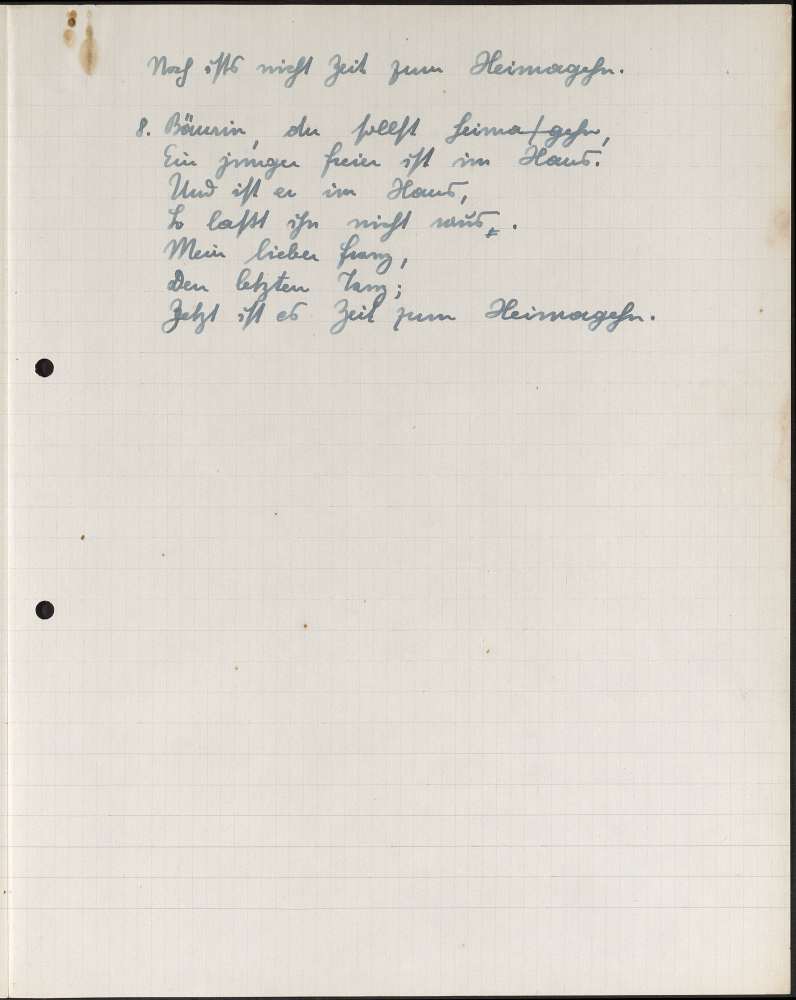 Noch ists nicht Zeit zum Heimagehn.
8. Bäurin, du sollst heima/gehn,
Ein junger Freier ist im Haus.
Und ist er im Haus,
So laßt ihn nicht raus.
Mein lieber Franz,
Den letzten Tanz;
Jetzt ist es Zeit zum Heimagehn.